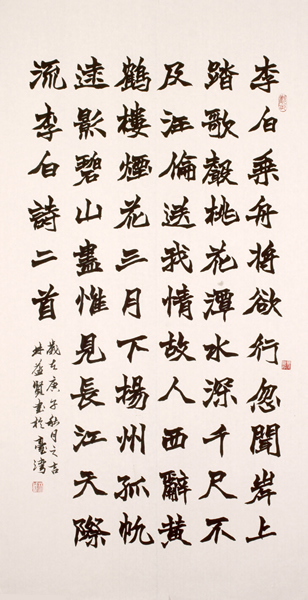 李白乘舟將欲行忽聞岸上
踏歌聲桃花潭水深千尺不
及汪倫送我情故人西辭黃
鶴樓煙花三月下揚州孤帆
遠影碧山盡惟見長江天際
流李白詩二首
歲在庚子秋月之吉
林益賢書於臺灣